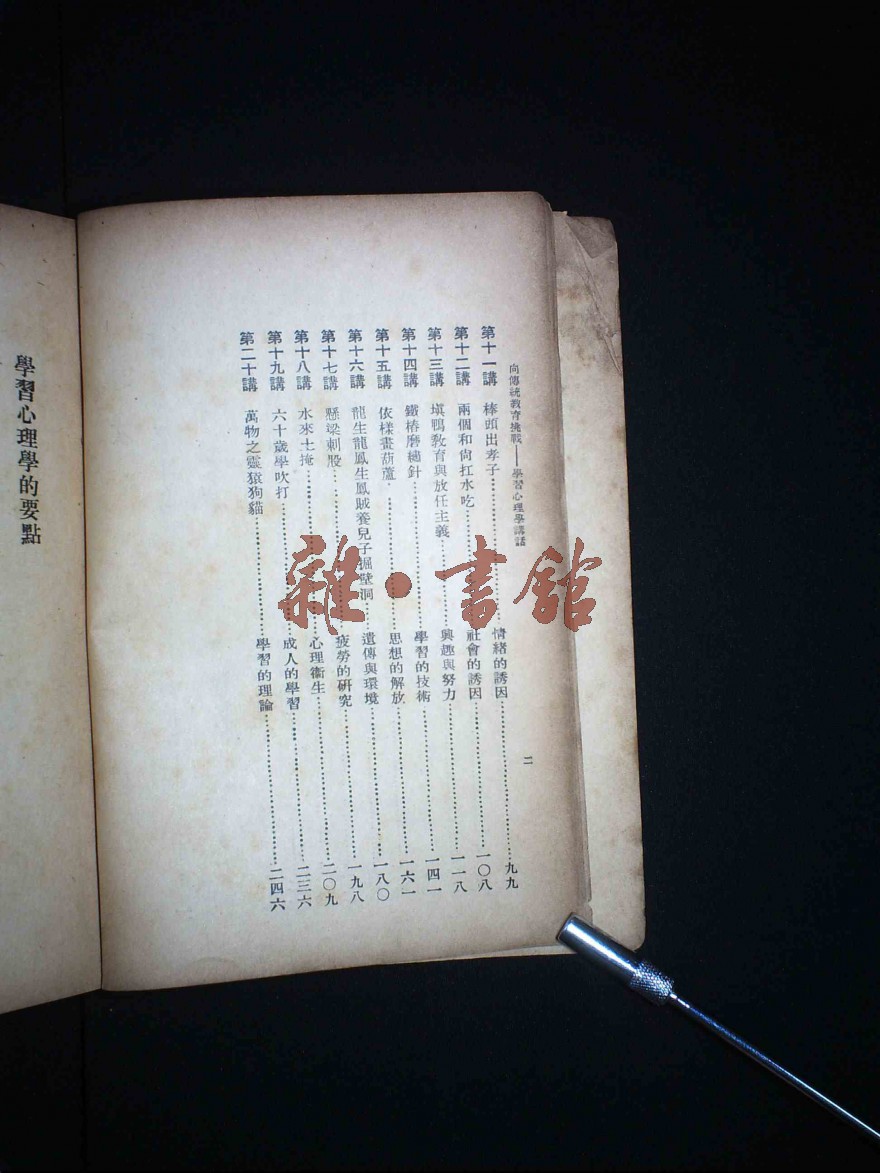 向傳統教育挑戰——學習心理學講話
二
第十一講 棒頭出孝子……情緒的誘因……九九
第十二講 兩個和尙扛水吃……社會的誘因……一〇八
第十三講 塡鴨敎育與放任主義……興趣與努力……一一八
第十四講 鐵椿磨繡針……學習的技術……一四一
第十五講 依樣畫葫蘆……思想的解放……一六一
第十六講 龍生龍鳳生鳳賊養兒子掘壁洞……遺傳與環境……一八〇
第十七講 懸梁刺股……疲勞的研究……一九八
第十八講 水來土掩……心理衞生……二〇九
第十九講 六十歲學吹打……成人的學習……二三六
第二十講 萬物之靈猿狗貓……學習的理論……二四六
學習心理學的要點
雜·書館